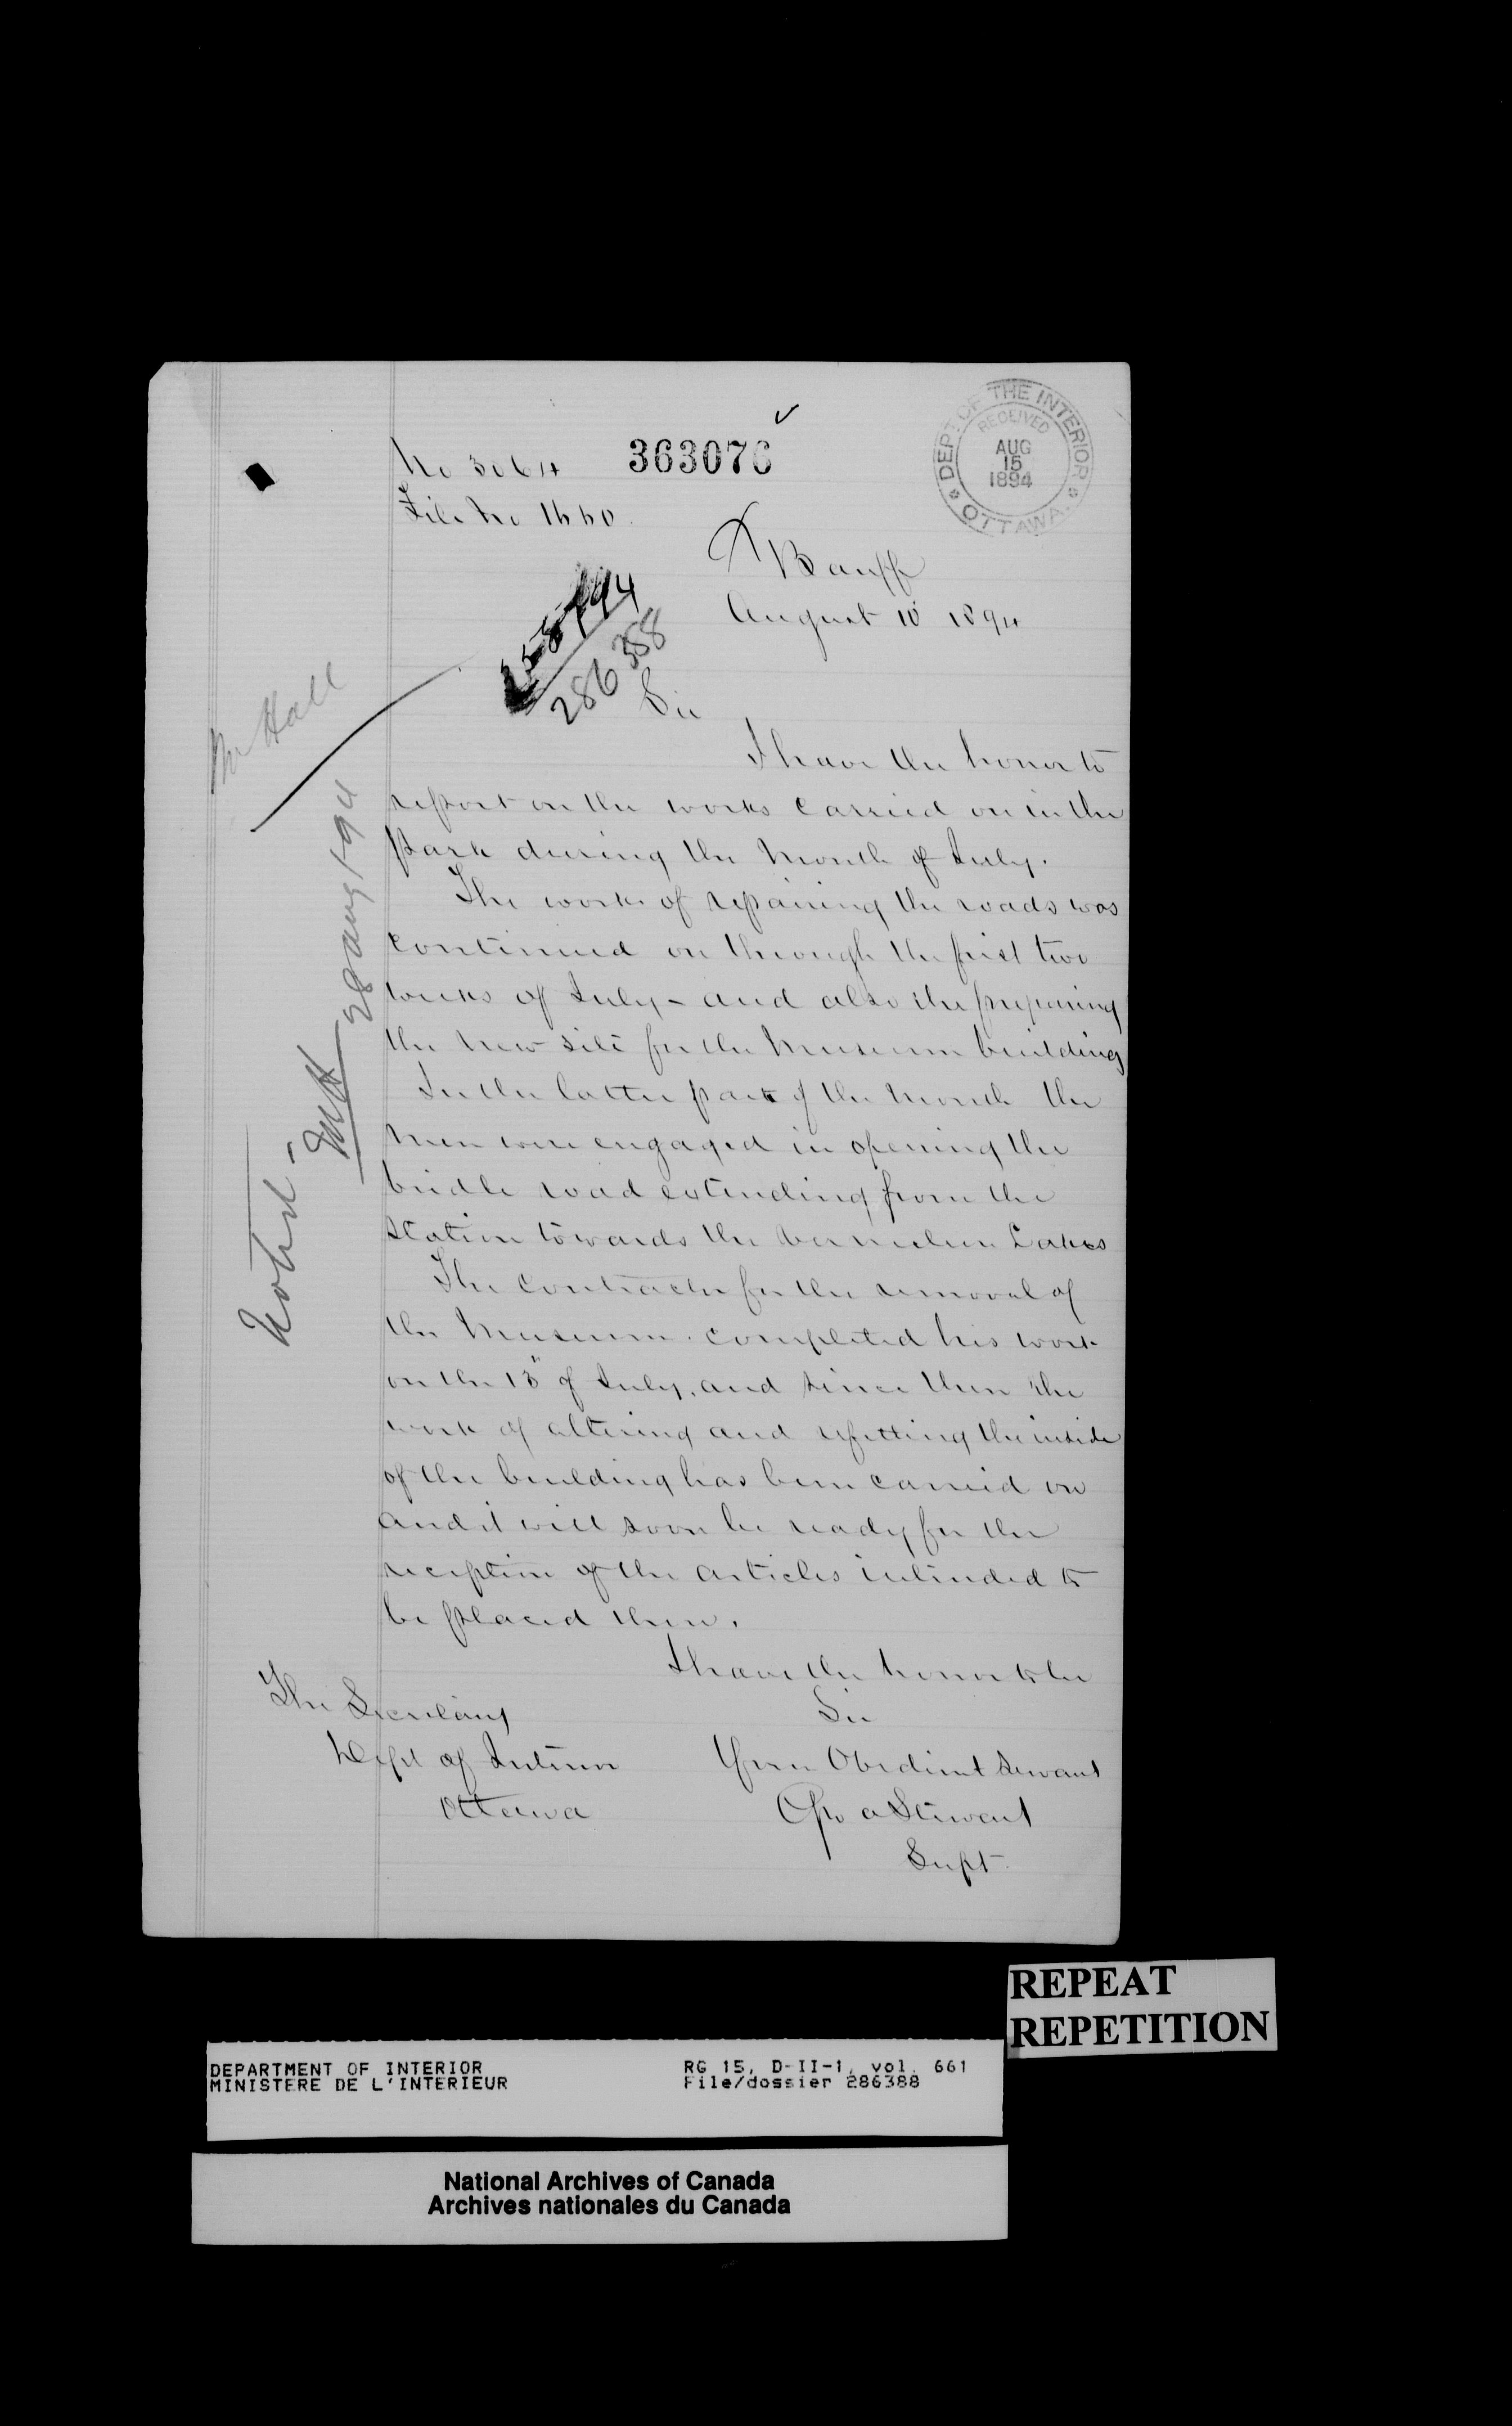 No 3064 363076
File No 1660.
DEPT OF THE INTERIOR
RECEIVED
AUG
15
1894
OTTAWA.
Banff
August 10 1894
286388
Mr Hall
Sir
I have the honor to
report on the works carried on in the
Park during the month of July.
The work of repairing the roads was
continued on through the first two
weeks of July - and also the preparing
the new site for the Museum building
In the latter part of the month the
men were engaged in opening the
bridle road extending from the
station towards the Vermilion Lakes
The Contractor for the removal of
the Museum completed his work
on the 13" of July, and since then the
work of altering and refitting the inside
of the building has been carried on
and it will soon be ready for the
reception of the articles intended to
be placed there.
I have the honor to be
Sir
Your Obedient Servant
Geo A Stewart
Supt.
The Secretary
Dept of Interior
Ottawa
Noted -
28 Aug 1894
REPEAT
REPETITION
DEPARTMENT OF INTERIOR RG 15, D-II-1, vol. 661
MINISTERE DE L'INTERIEUR File/dossier 286388
National Archives of Canada
Archives nationales du Canada